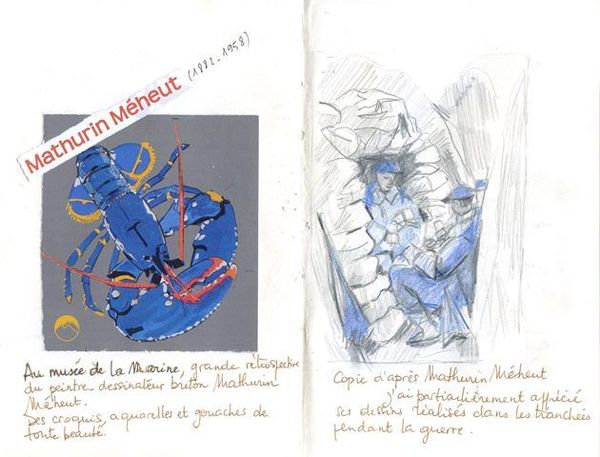 Mathurin Méheut
(1882-1958)
Au musée de la Marine, grande rétrospective
du peintre dessinateur breton Mathurin
Méheut.
Des croquis, aquarelles et gouaches de
toute beauté.
Copie d'après Mathurin Méheut
j'ai particulièrement apprécié
ses dessins réalisés dans les tranchées
pendant la guerre.